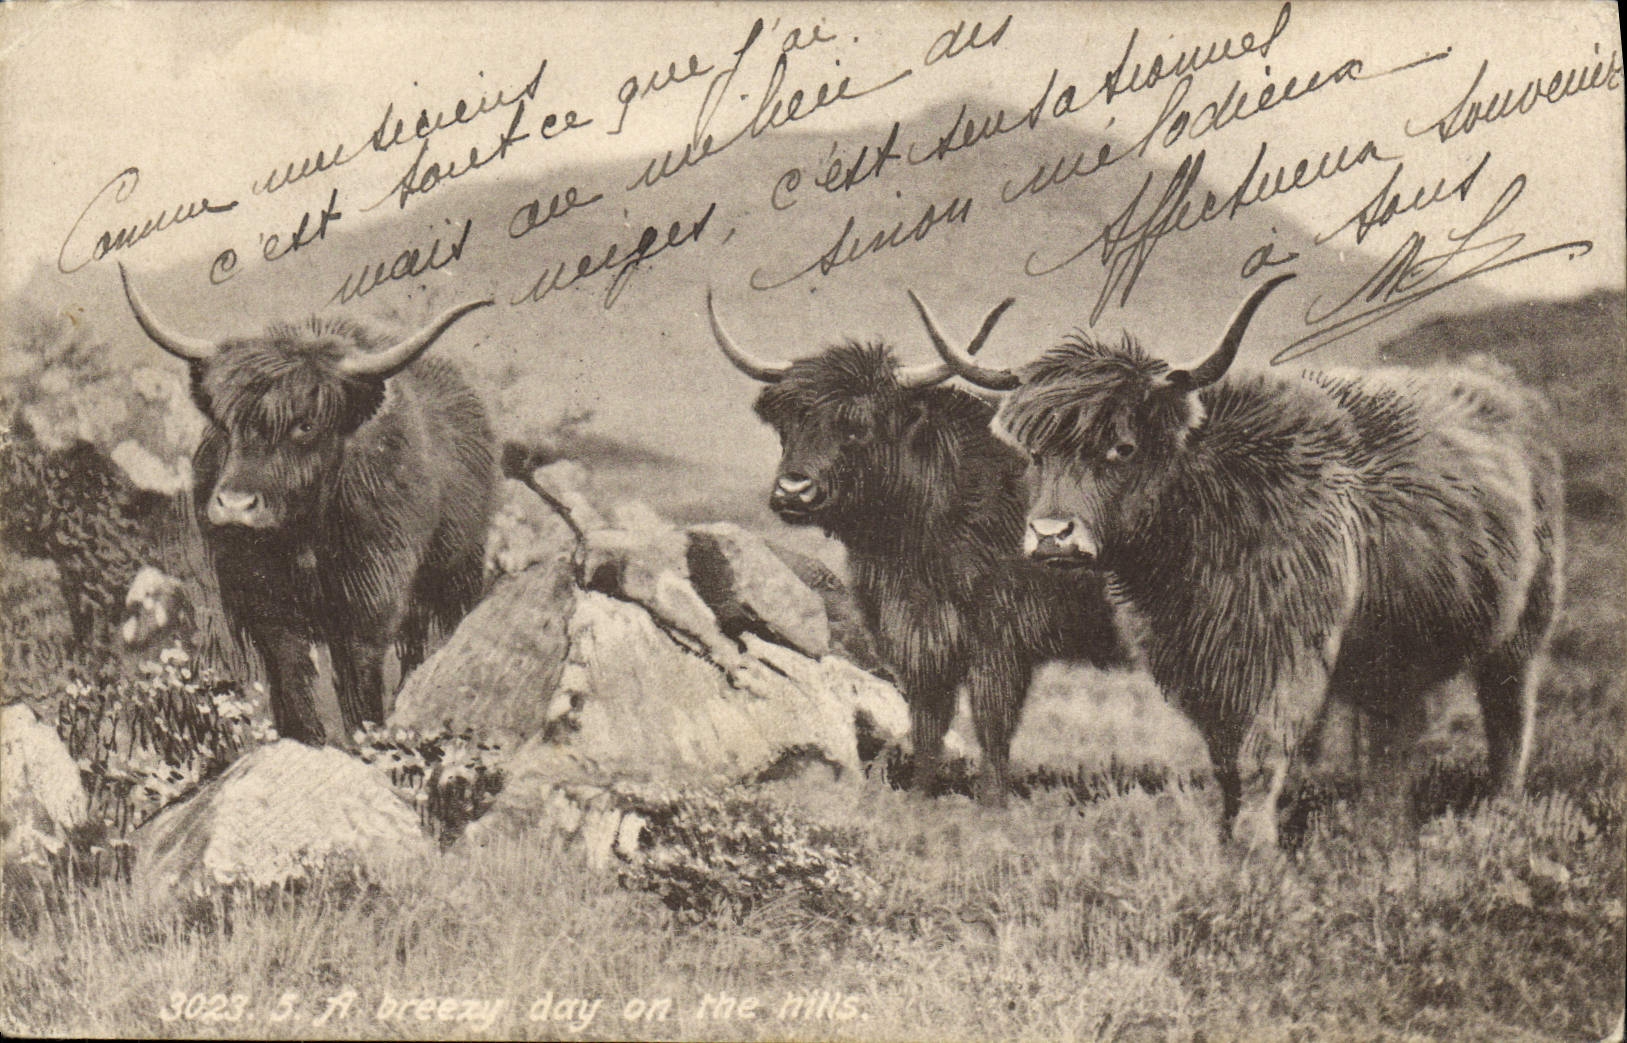 Comme musiciens
c'est tout ce que j'ai.
mais au milieu des
neiges, c'est sensationnel
sinon mélodieux.
Affectueux souvenir
à tous
3023. 5. A breezy day on the hills.